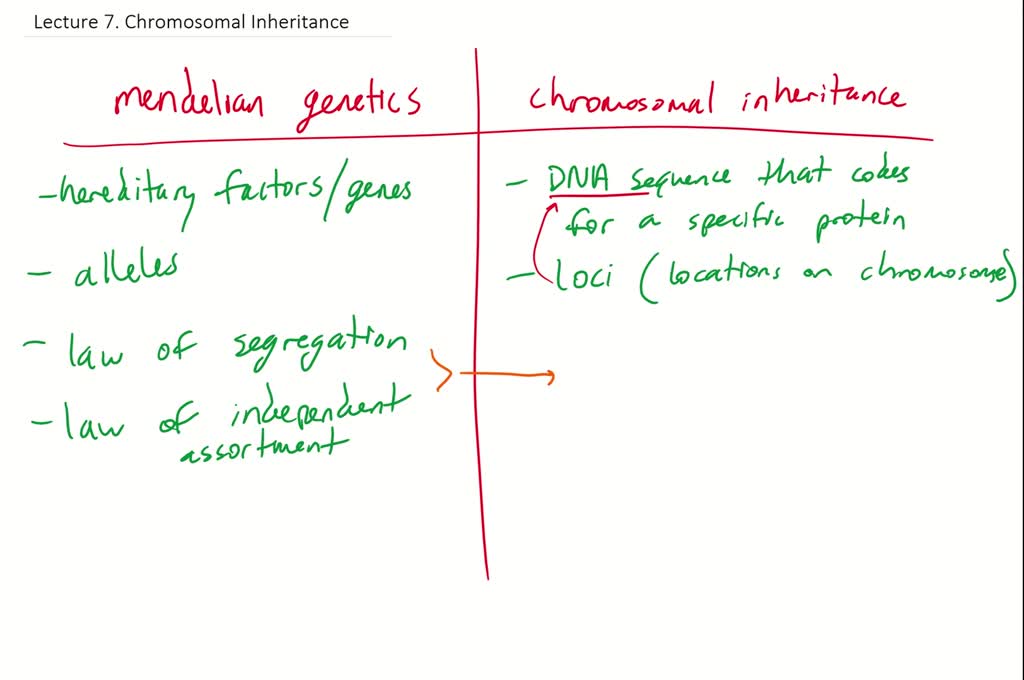 Lecture 7. Chromosomal Inheritance
mendelian genetics
- hereditary factors/genes
- alleles
- law of segregation
- law of independent
assortment
chromosomal inheritance
- DNA sequence that codes
for a specific protein
- loci (locations on chromosome)